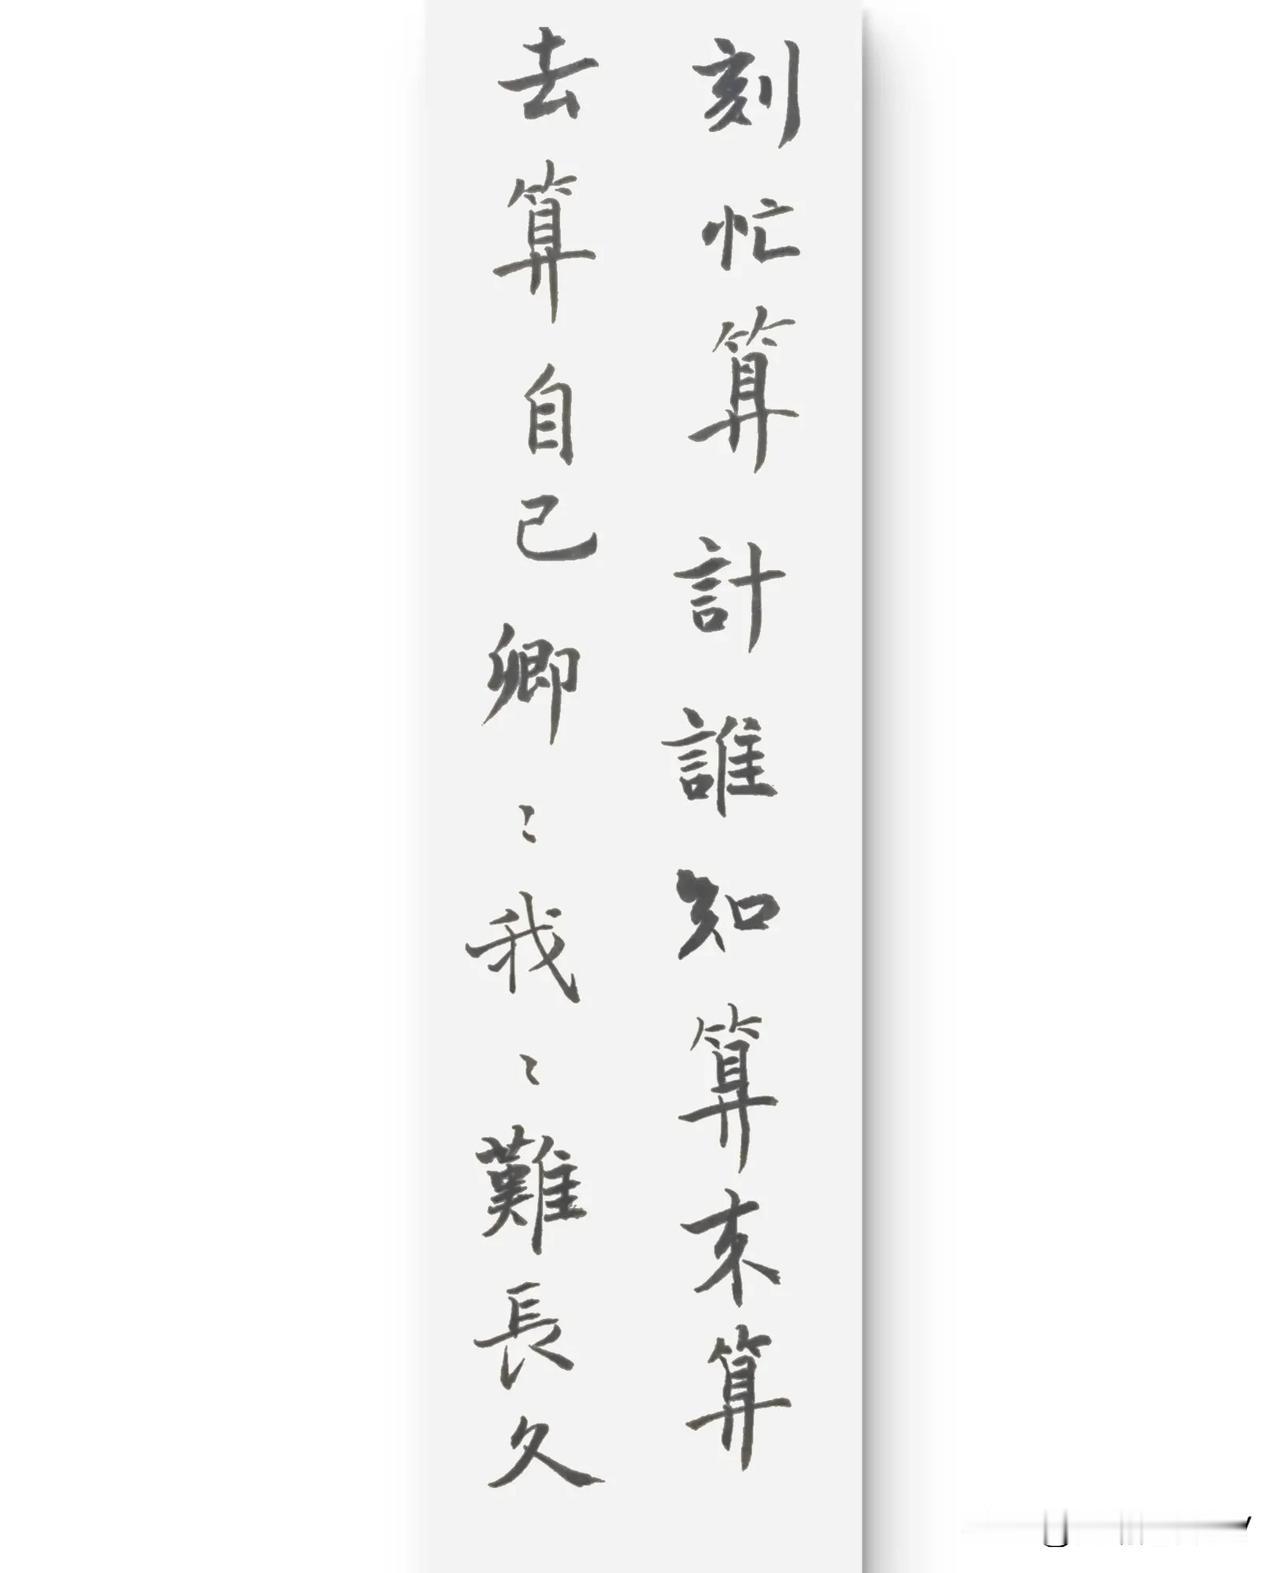 刻忙算計誰知算来算
去算自己卿〻我〻難長久